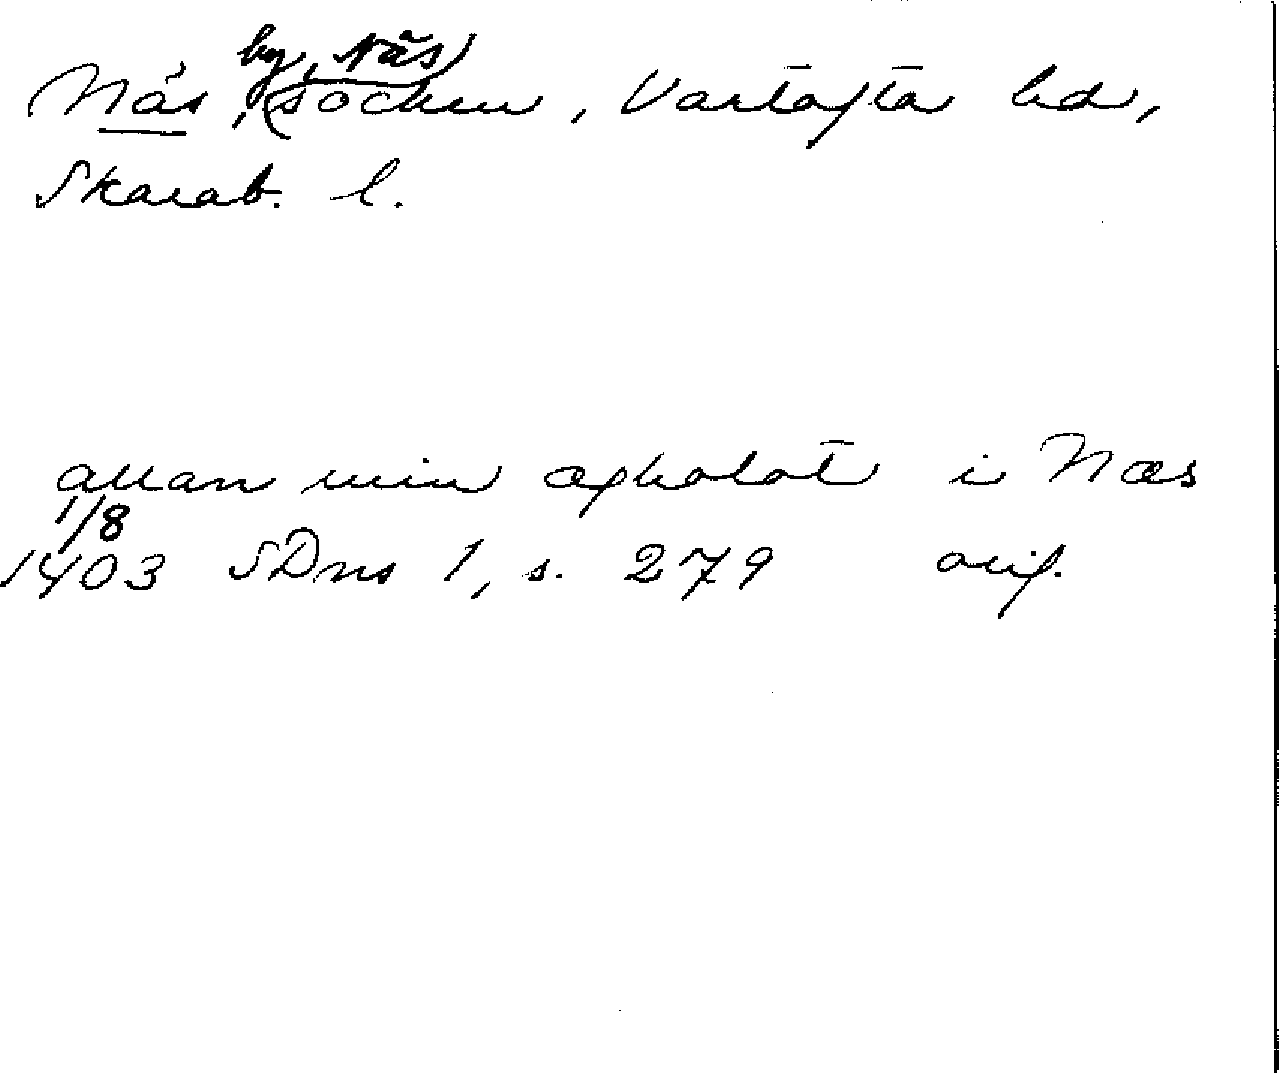 by, Näs
Näs, socken, Vartofta hd,
Skarab. l.
allan min ægholot i Næs
1/8
1403 SDns 1, s. 279 orig.